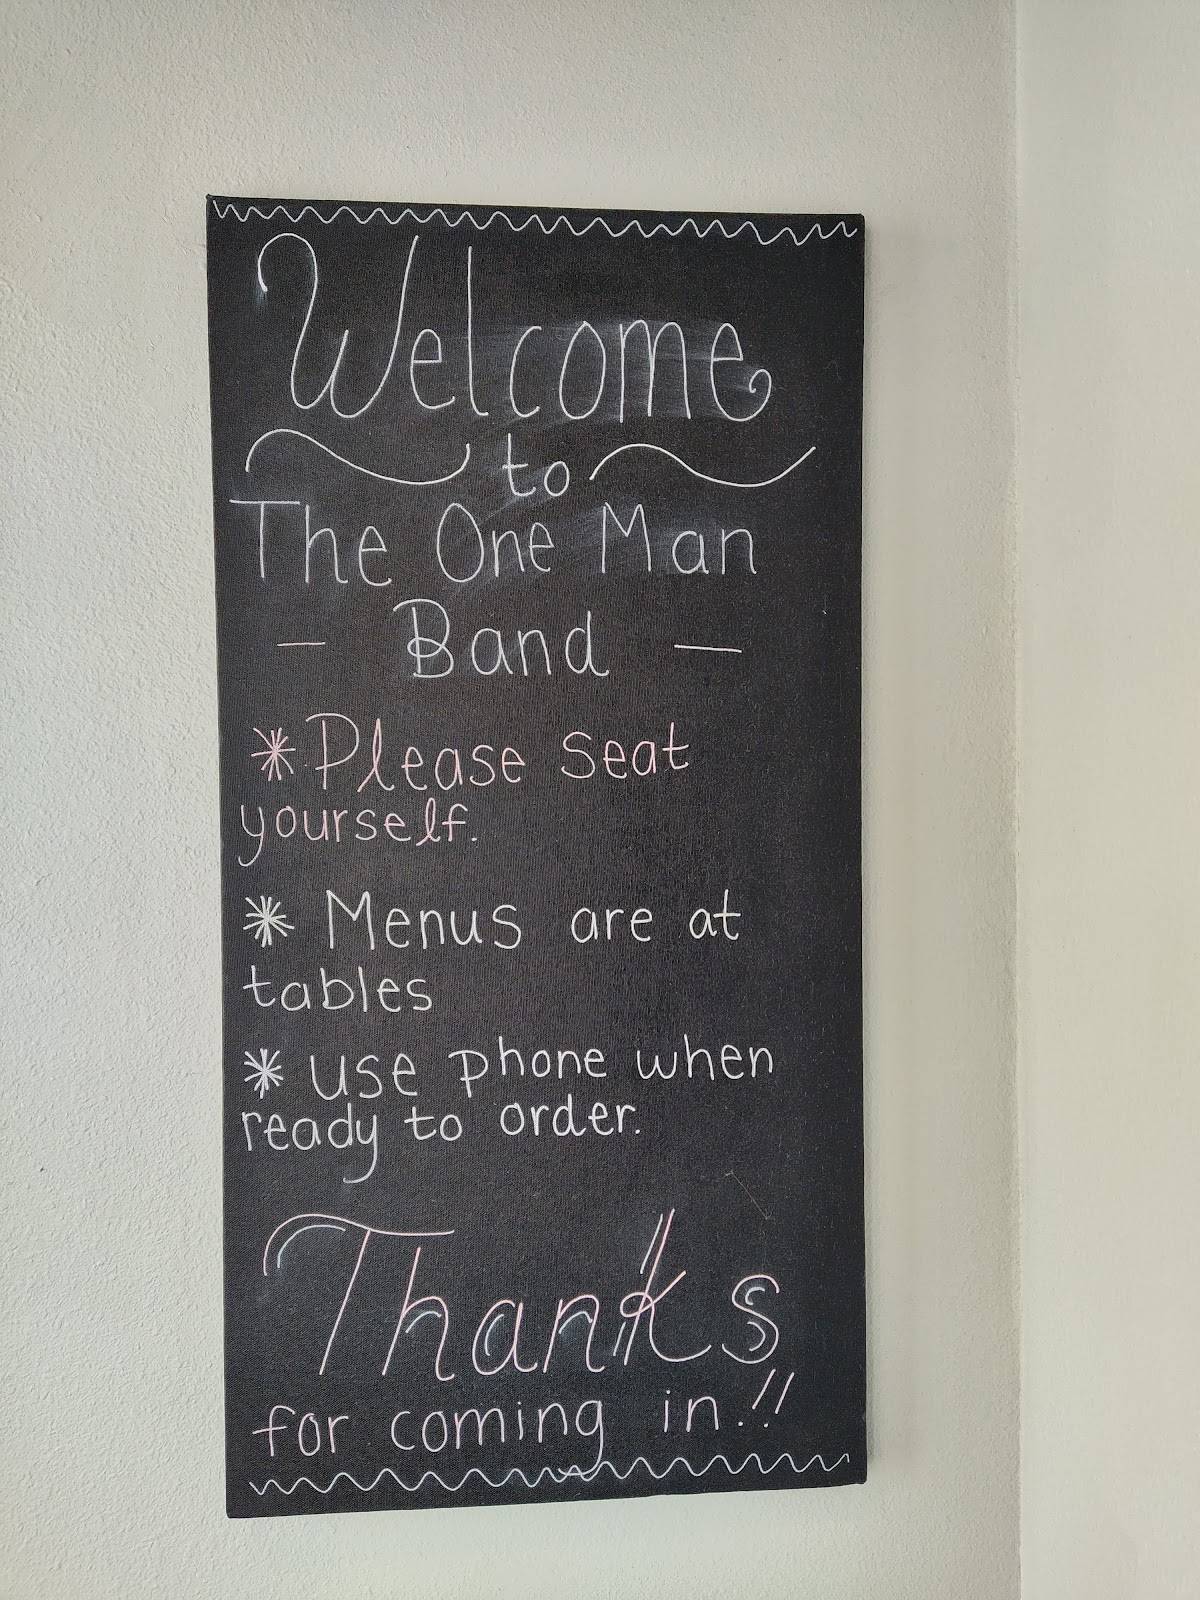 Welcome
to
The One Man
- Band -
*Please seat
yourself.
* Menus are at
tables
* use phone when
ready to order.
Thanks
for coming in.!!